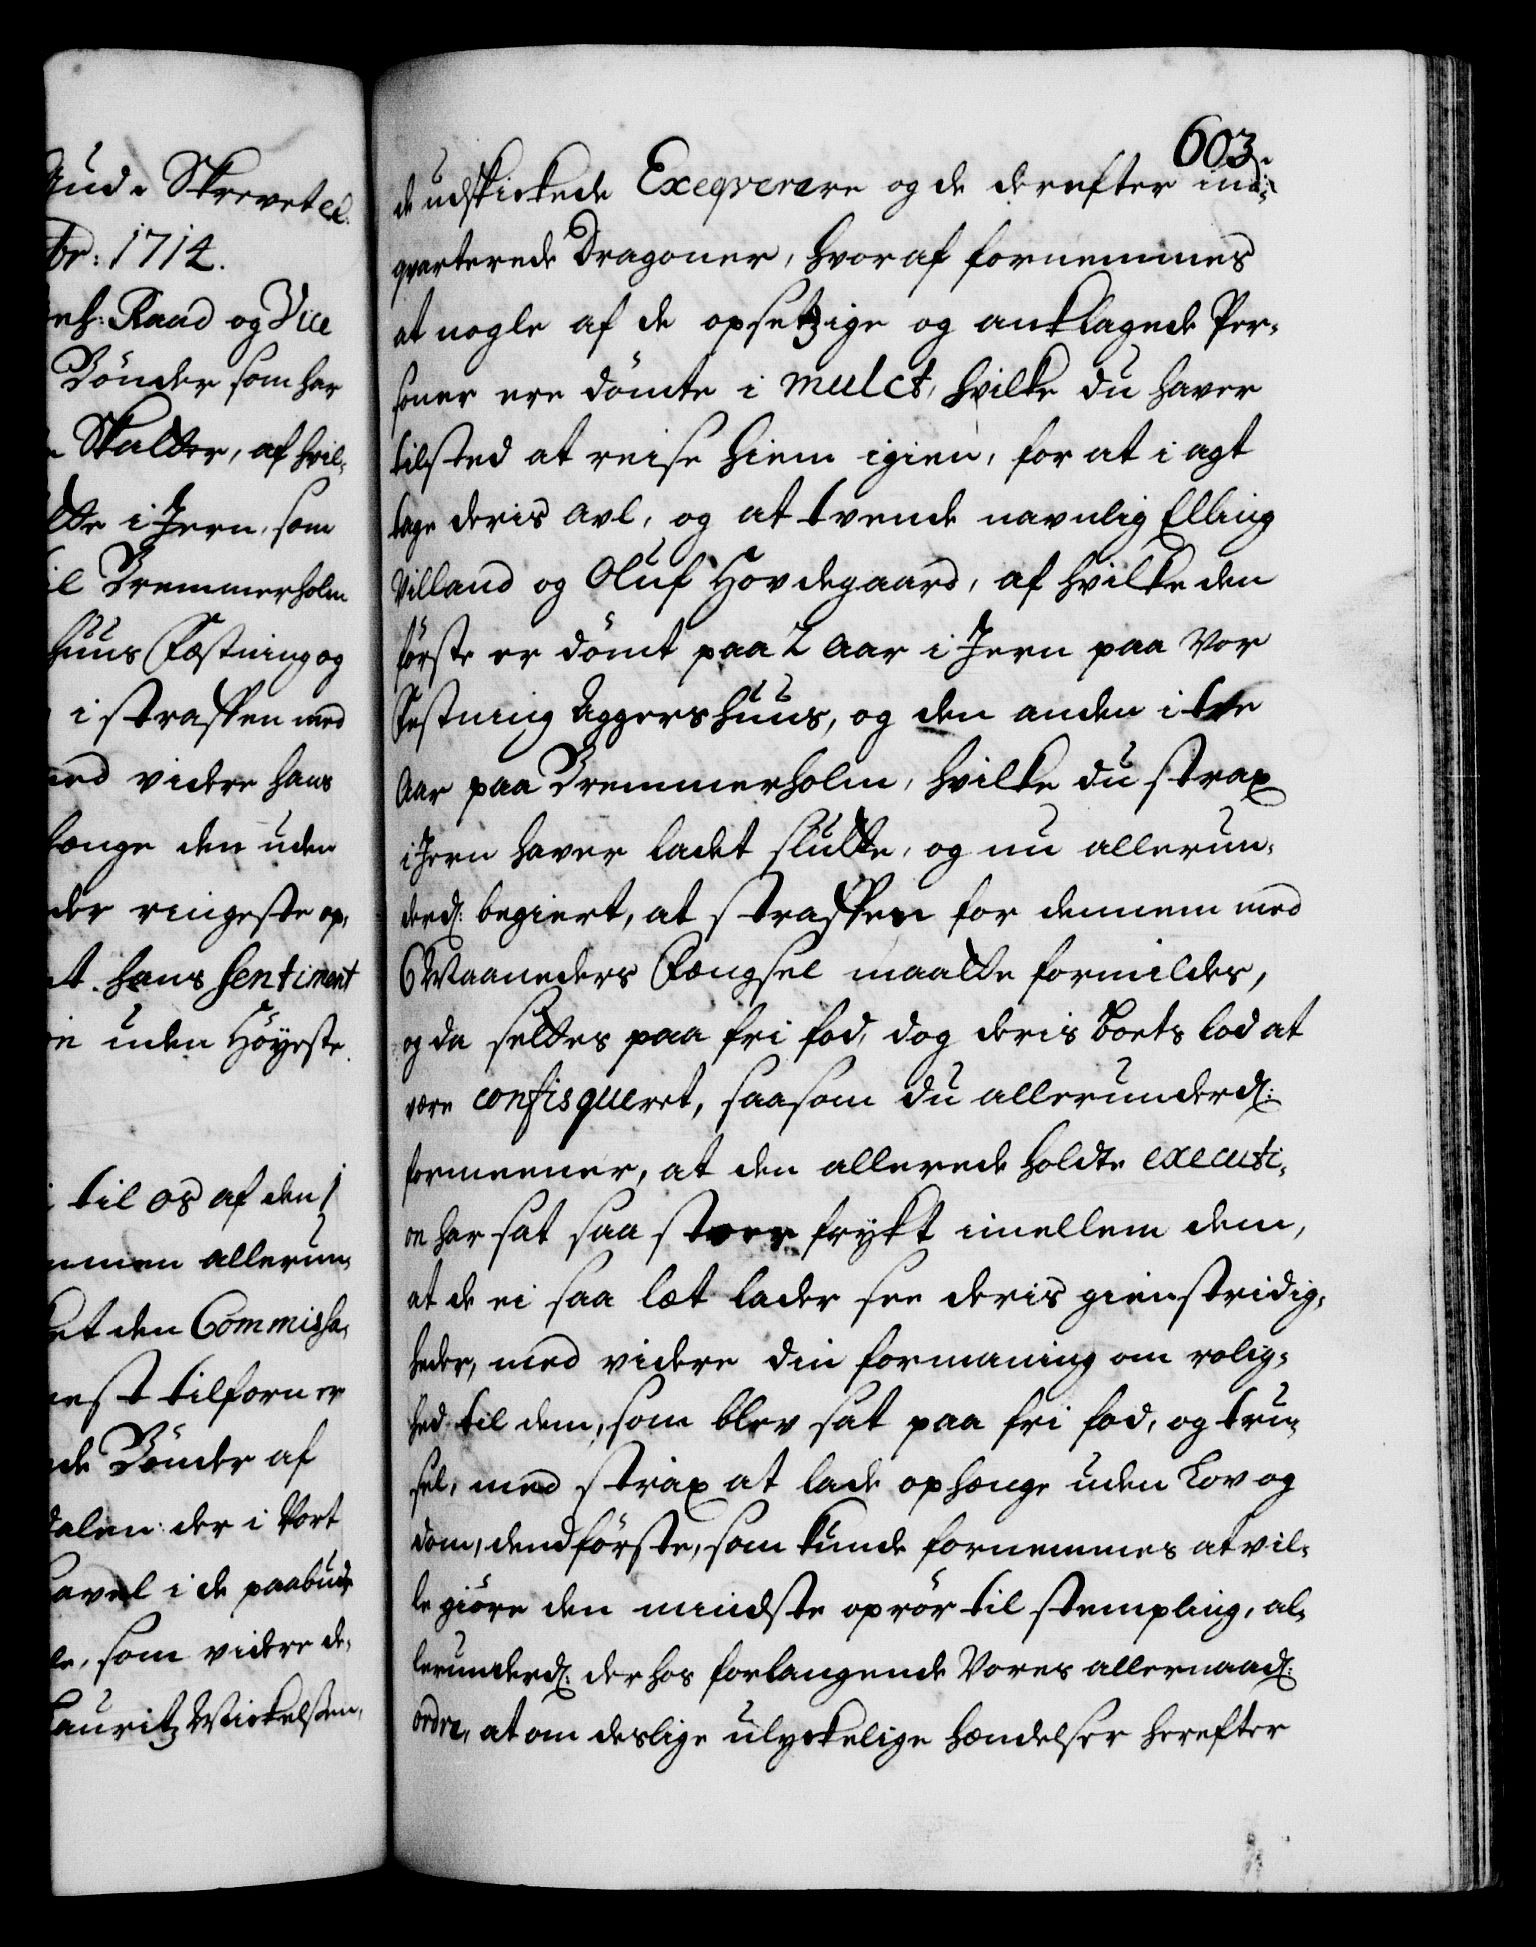 Gud. Skrevet el.
br: 1714.
enh: Raad og Vice
Bønder som har
n Skatter, af hvil-
dtte i Jern, som
il Bremmerholm
huus Fæstning og
i straffen med
med videre hans
længe den uden
der ringeste op-
et hans Sentiment
en uden Høyeste
til os af den 1
mmen allerun-
et den Commissa-
nest tilforn er
nde Bønder af
dalen: der i Vort
savel i de paabudne
le, som videre de-
Lauritz Mickelsen,
603.
de udskickede Exeqverere og de derefter ind-
qvarterede Dragoner, hvoraf fornemmes
at nogle af de opsetzige og anklagede Per-
soner ere dömte i mulct, hvilke du haver
tilsted at reise hiem igien, for at i agt
tage deris avl, og at tvende navnlig Elling
Villand og Oluf Hovdegaard, af hvilke den
förste er dömt paa 2 Aar i Jern paa Vor
Festning Aggershuus, og den anden i tre
Aar paa Bremmerholm, hvilke du strax
i Jern haver ladet slutte, og nu allerun-
derd: begiert, at straffen for dennem med
6 Maaneders Fængsel maatte formildes,
og da settes paa fri fod, dog deris Boets lod at
være confisqueret, saasom du allerunderd:
formeener, at den allerede holdte executi-
on har sat saa stoer frykt imellem dem,
at de ei saa læt lader see deris gienstridig-
heder, med videre din formaning om rolig-
hed til dem, som blev sat paa fri fod, og tru-
sel, med strax at lade ophænge uden Lov og
dom, dend förste, som kunde fornemmes at vil-
le giöre den mindste oprör til stempling, al-
lerunderd: der hos forlangende Vores allernaad:
ordre, at om deslige ulyckelige hændelser herefter